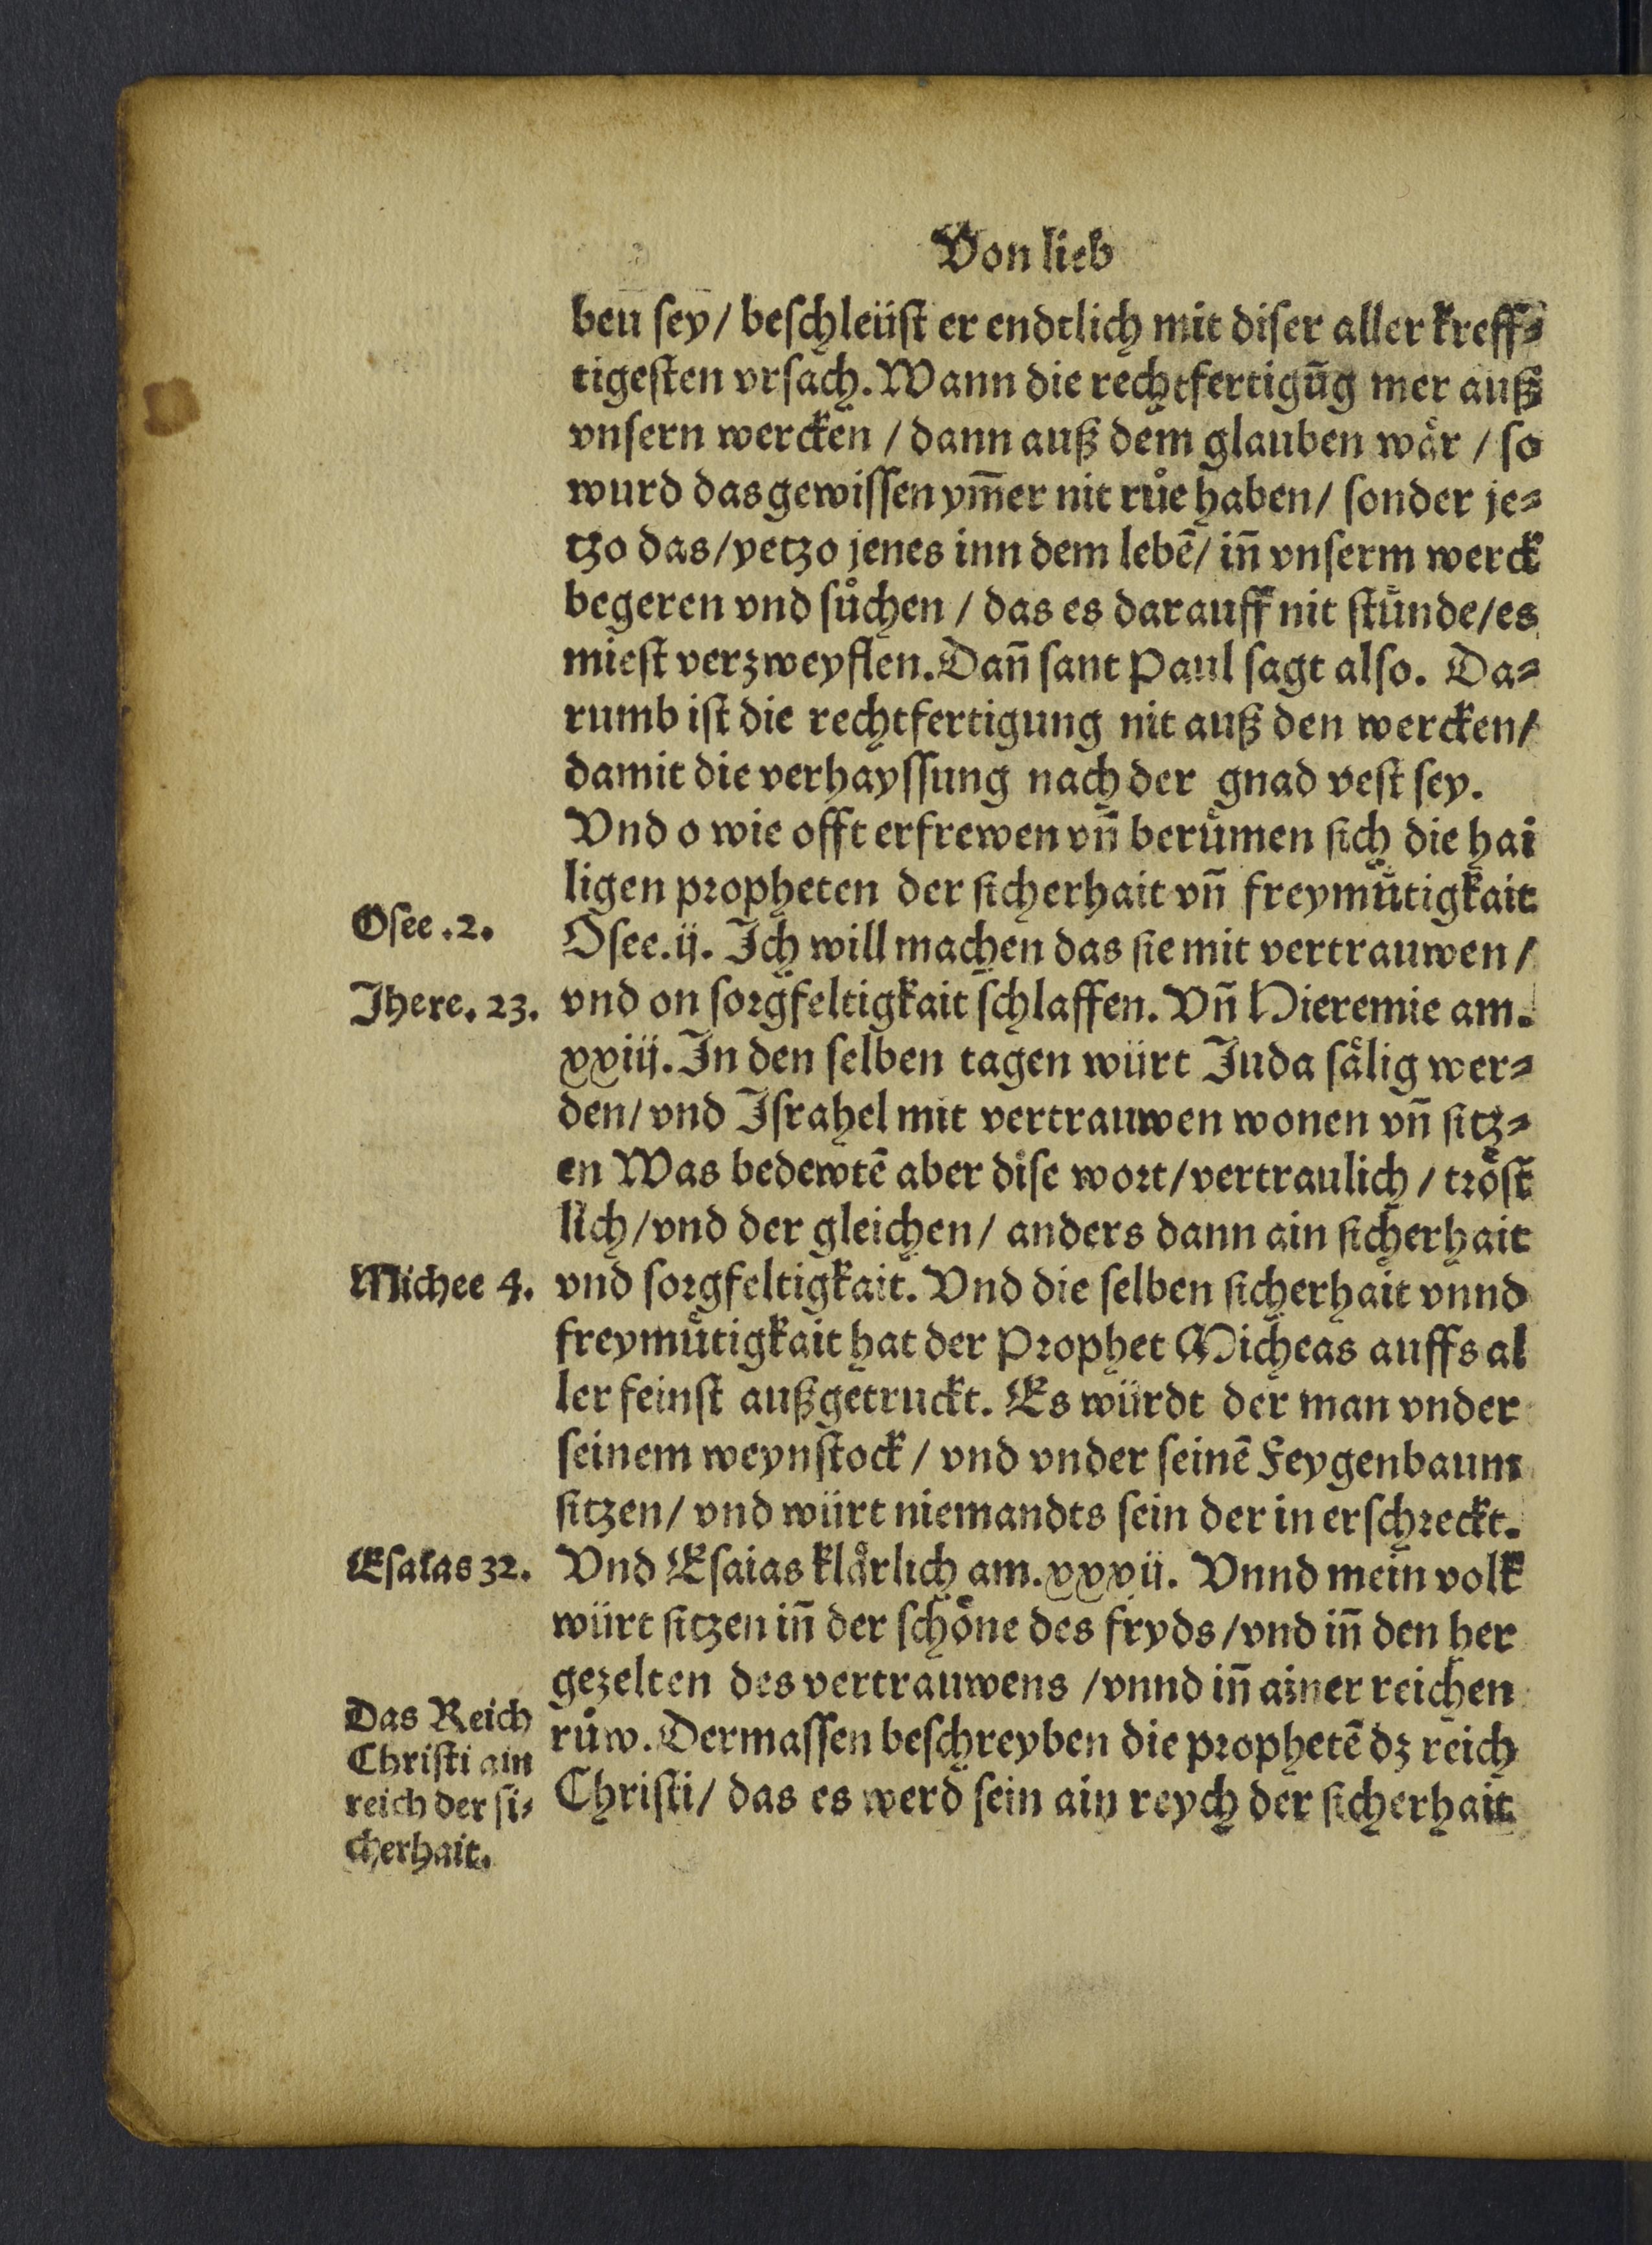 Von lieb
ben sey/ beschleüst er endtlich mit diser aller kreff⸗
tigesten vrsach. Wann die rechtfertigūg mer auß
vnsern wercken / dann auß dem glauben wär / so
wurd das gewissen ym̄er nit růe haben/ sonder je⸗
tzo das/yetzo jenes inn dem lebē/ iñ vnserm werck
begeren vnd sůchen / das es darauff nit stůnde/es
miest verzweyflen. Dañ sant Paul sagt also. Da⸗
rumb ist die rechtfertigung nit auß den wercken/
damit die verhayssung nach der gnad vest sey.
Vnd o wie offt erfrewen vñ berůmen sich die hai
ligen propheten der sicherhait vñ freymůtigkait
Osee .2.
Osee.ij. Ich will machen das sie mit vertrauwen /
Jhere. 23.
vnd on sorgfeltigkait schlaffen. Vñ Hieremie am.
xxiij. In den selben tagen würt Juda sälig wer⸗
den/ vnd Israhel mit vertrauwen wonen vñ sitz⸗
en Was bedewtē aber dise wort/vertraulich / tröst
lich/vnd der gleichen/ anders dann ain sicherhait
Michee 4.
vnd sorgfeltigkait. Vnd die selben sicherhait vnnd
freymůtigkait hat der Prophet Micheas auffs al
ler feinst außgetruckt. Es würdt der man vnder
seinem weynstock / vnd vnder seinē Feygenbaum
sitzen/ vnd würt niemandts sein der in erschreckt.
Esaias 32.
Vnd Esaias klärlich am.xxxij. Vnnd mein volk
würt sitzen iñ der schöne des fryds /vnd iñ den her
gezelten des vertrauwens /vnnd iñ ainer reichen
Das Reich
Christi ain
reich der si⸗
cherhait.
růw. Dermassen beschreyben die prophetē dz reich
Christi/ das es werd sein ain reych der sicherhait